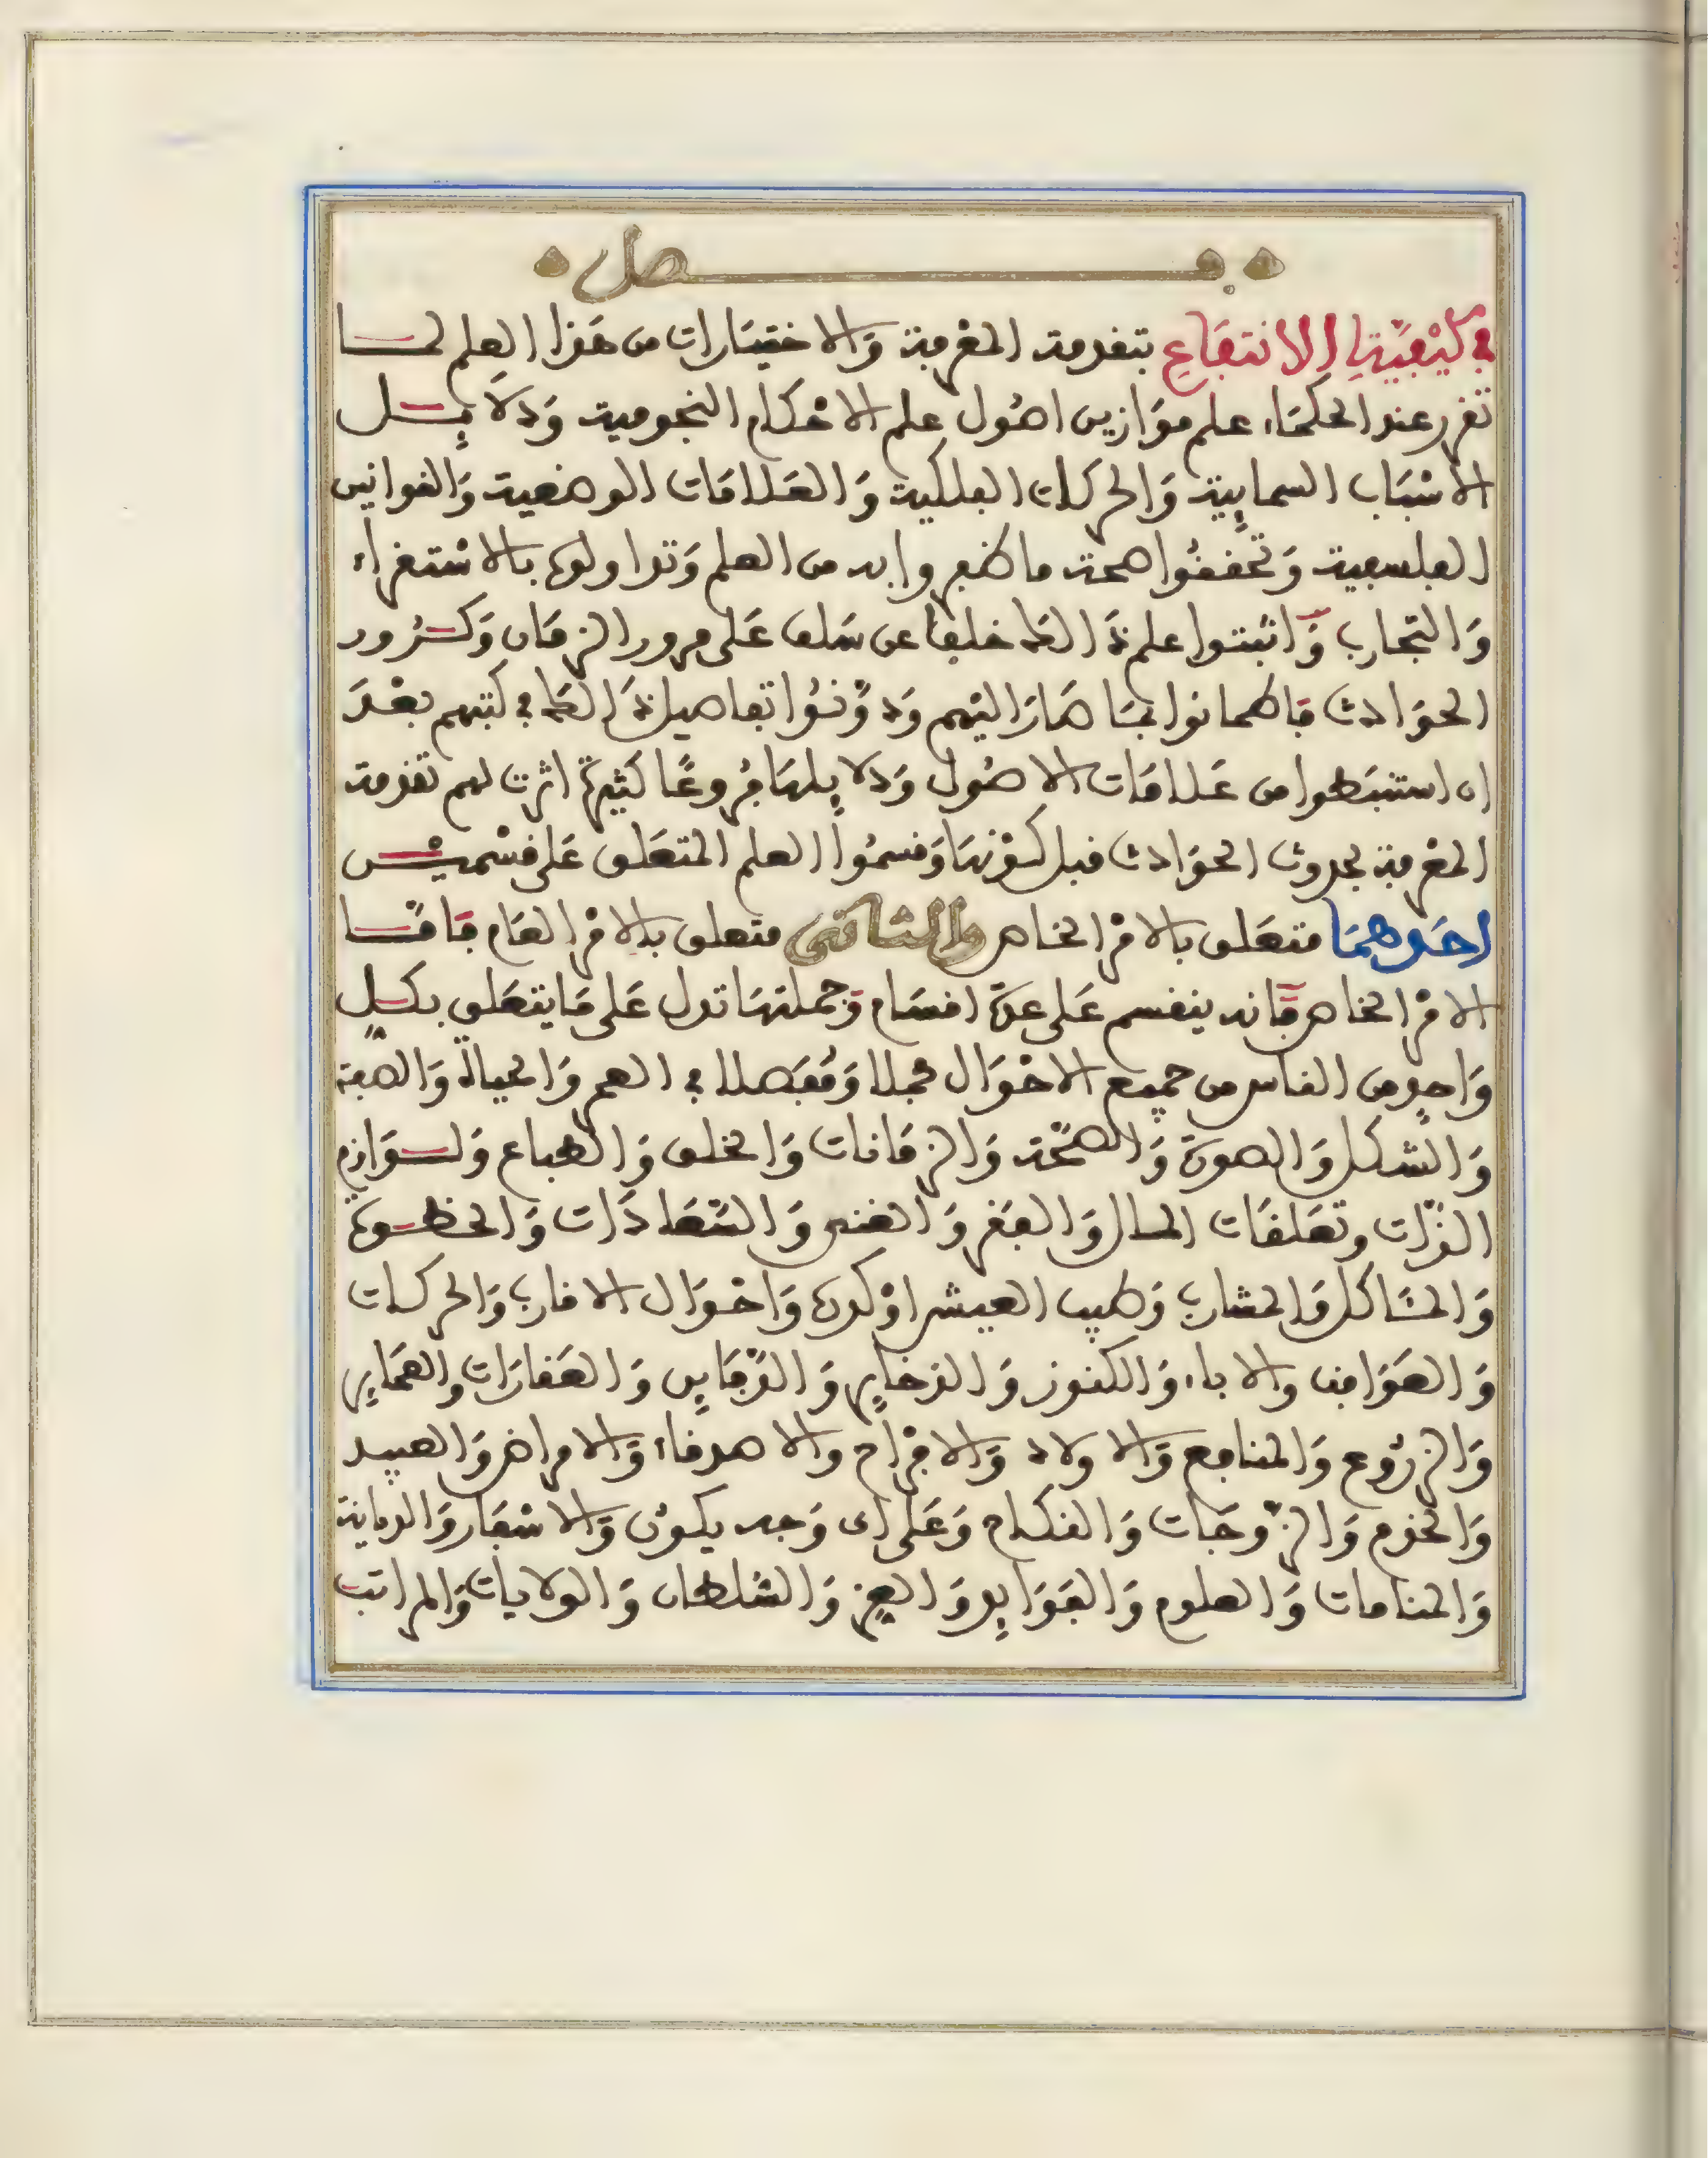 فصل
في كَيْفِيَّةِ الانتِفَاعِ بتقدمة المَعْرفة وَالاختِيَارات من هَذا العِلم لمـا
تقرر عند الحكمَاء علم موَازين اصُول علم الاحْكام النجومية وَدلَايـل
الاسْبَاب السمايية وَالحركات الفلكية وَالعَلامَات الوضعية وَالقوانين
الفلسفية وَتحققوا صحة ما ظفروا به من العلم وَتداولوه بالاسْتقراء
وَالتجَارب وَاثبتوا علم ذَالك خلفا عن سَلف عَلى مرور الزمَان وَكـرُور
الحوَادث فَاطمانوا بمَا صَارَ اليْهم وَدوَّنُوا تفاصيل ذَالك في كتبهم بَعْدَ
ان استنبَطوا من عَلامَات الاصُول وَدلايلهَا فُروعًا كثيرةً اثرت لهم تقدمة
المَعْرفة بحدوث الحوَادث قبل كَوْنهَا وَقسمُوا العلم المتعَلق عَلى قسْميْـن
احَدهمَا متعَلق بالامْر الخاص وَالثاني متعلق بالامْر العَام فَامَّـا
الامْر الخاص فَانه ينقسم عَلى عدة اقسَام وَجملتهَا تدل عَلى مَا يتعَلق بكـل
وَاحدٍ من الناس من جميع الاحْوَال مجملا وَمُفَصلا في العمر وَالحياة وَالصفة
وَالشكل وَالصورَة وَالصّحّة وَالزمَانات وَالخلق وَالطباع وَلـوَازم
الذَّات وتعَلقَات المـال وَالفَقر وَالغنى وَالسَّعَادَات وَالحظـوة
وَالمَـاكل وَالمشارب وَطيب العيش اوْ كدره وَاحْوَال الاقارب وَالحركات
وَالعَوَاقب والاباء وَالكنوز وَالذخاير وَالدَّفَاين وَالعَقارَات والعمَاير
وَالزرُوع وَالمنافع وَالاولاد وَالافْرَاح والاصدقاء وَالامراض وَالعبيـد
وَالخدَم وَالزّوجَات وَالنكـاح وَعَلى اى وَجه يكوْن وَالاسْفَار وَالديانة
وَالمنامات وَالعلوم وَالفَوَايد وَالعِز وَالسُّلطان وَالولايات وَالمراتب